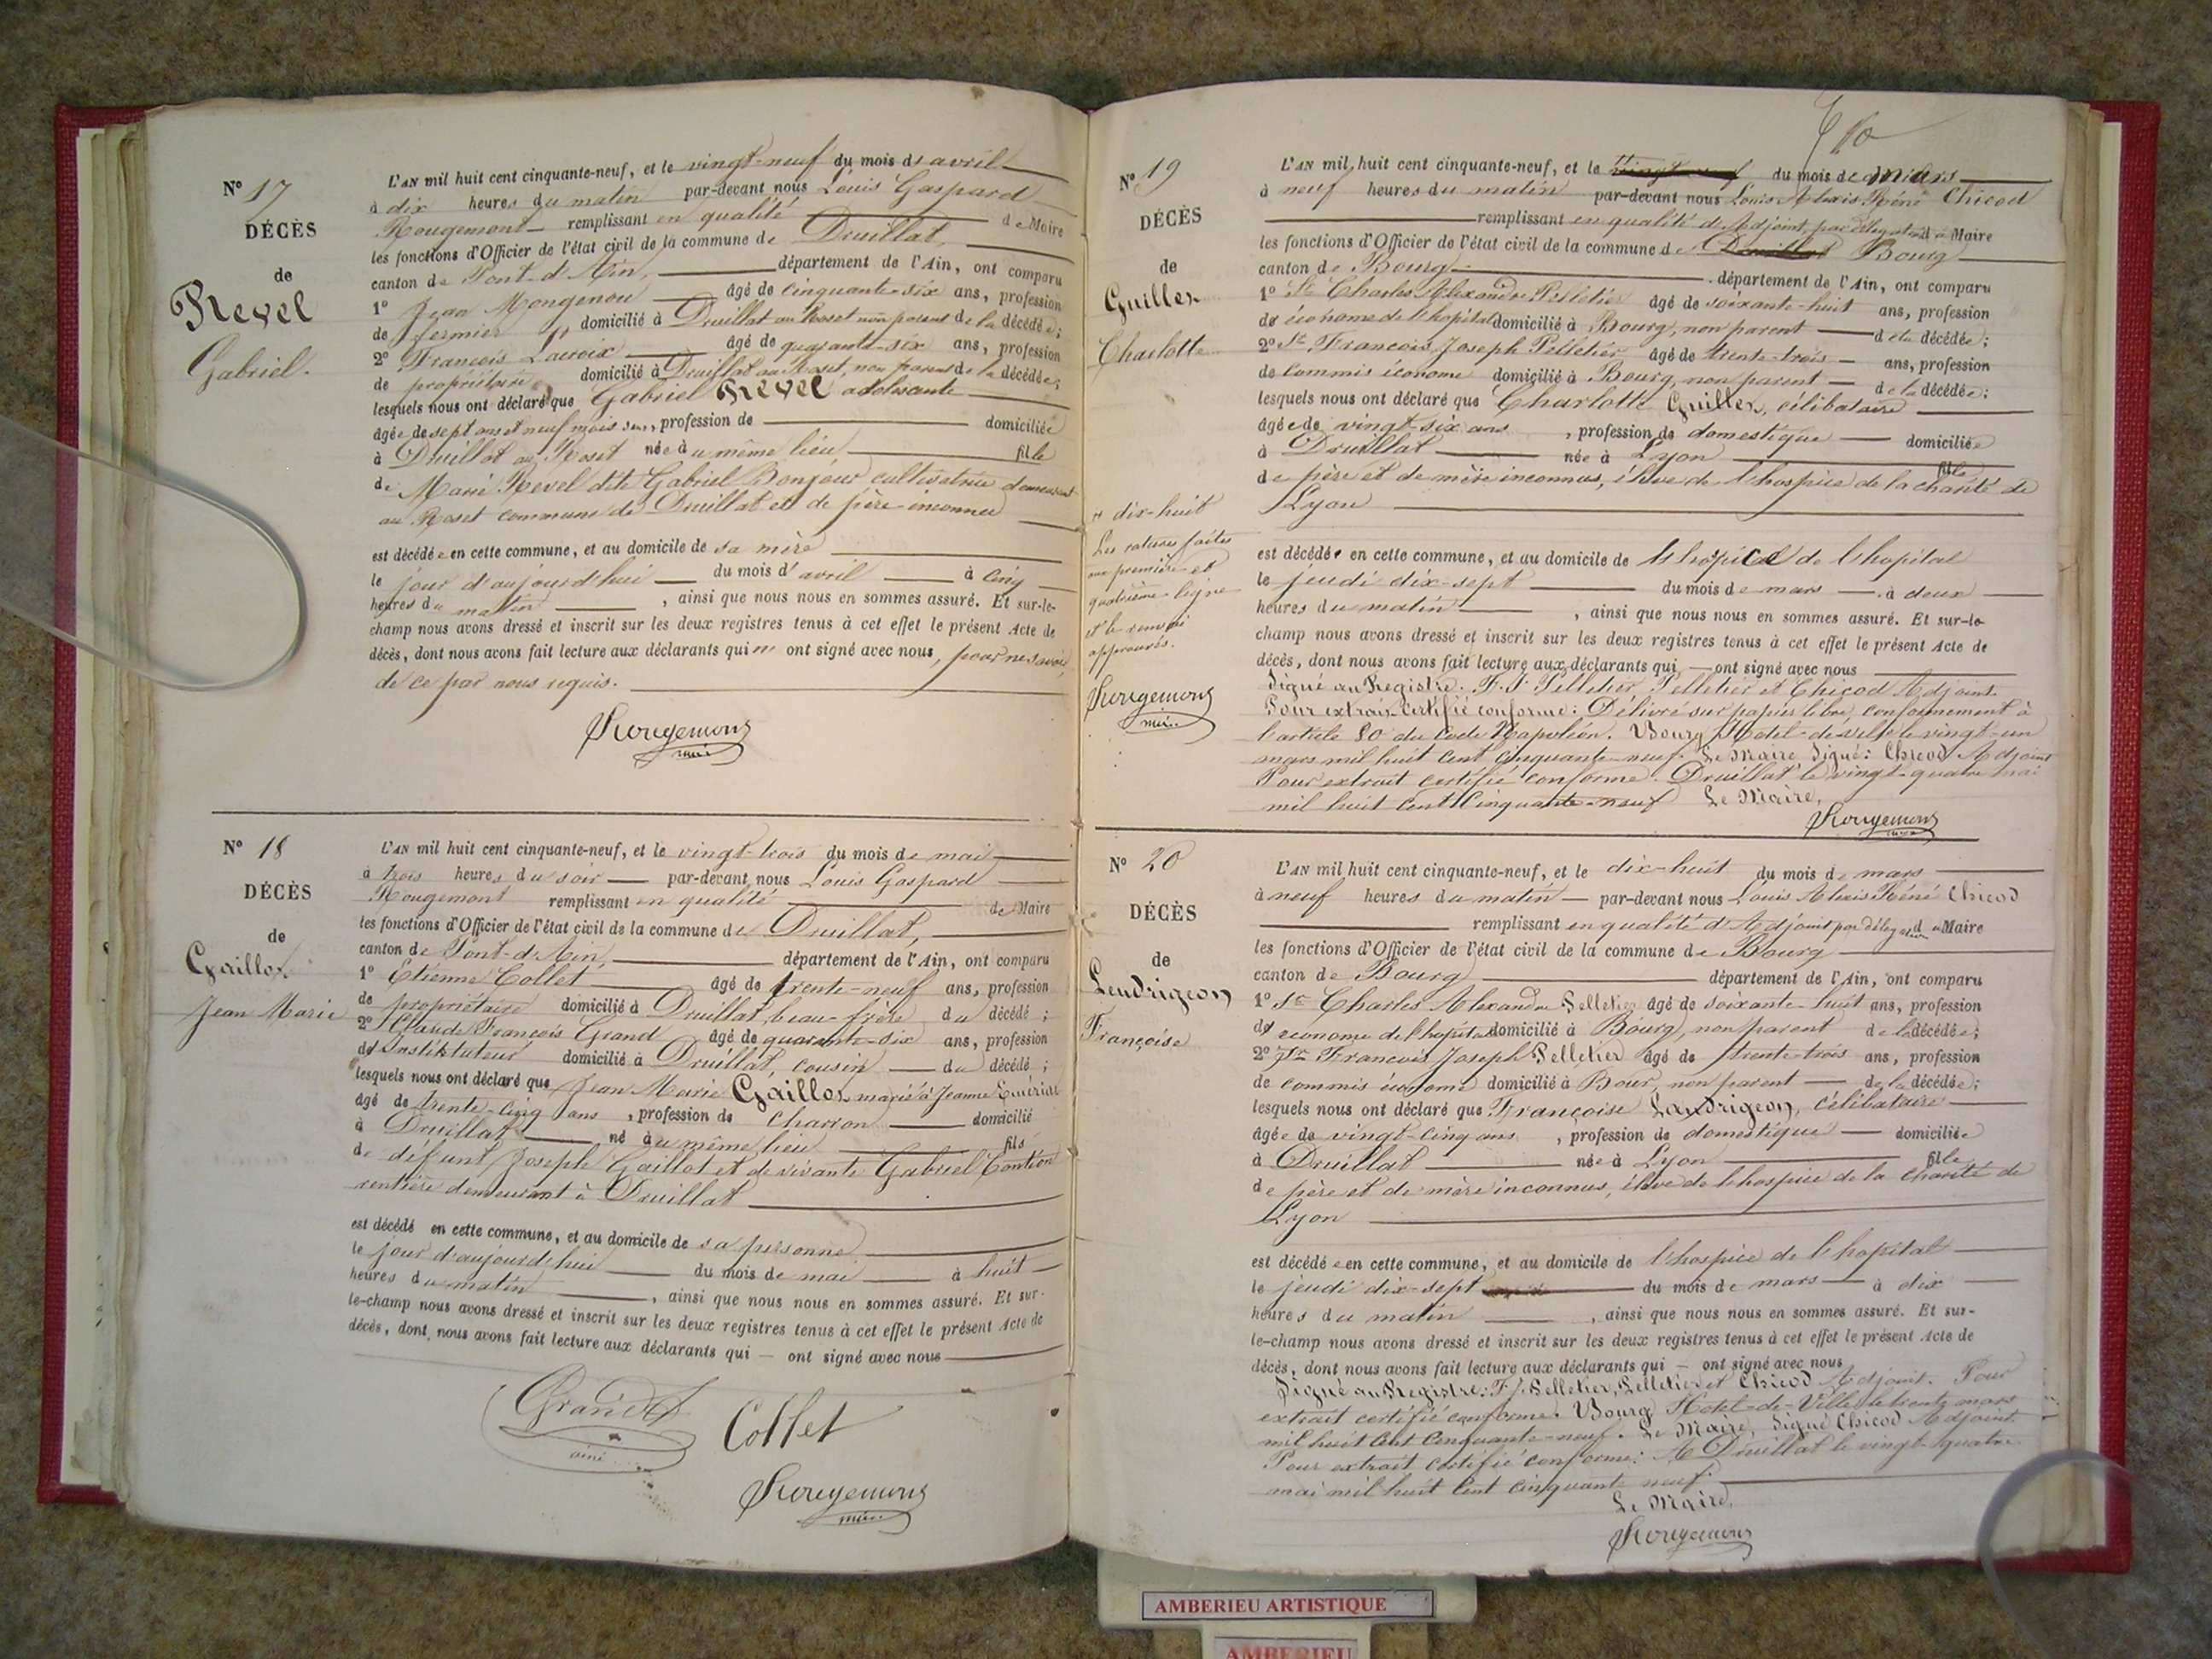 N° 17
DÉCÈS
de
Revel
Gabriel.
L'AN mil huit cent cinquante-neuf, et le vingt-neuf du mois d'avril
à dix heures du matin par-devant nous Louis Gaspard
Rougemont remplissant en qualité de Maire
les fonctions d'Officier de l'état civil de la commune de Druillat,
canton de Pont-d'Ain, département de l'Ain, ont comparu
1° Jean Mongenou âgé de cinquante-six ans, profession
de fermier domicilié à Druillat au Roset non parent de la décédée;
2° François Lacroix âgé de quarante-six ans, profession
de propriétaire domicilié à Druillat au Roset, non parent de la décédée;
lesquels nous ont déclaré que Gabriel Revel adolescente
âgée de sept ans et neuf mois, profession de domiciliée
à Druillat au Roset née au même lieu fille
de Marie Revel dite Gabriel Bonjour cultivatrice demeurant
au Roset commune de Druillat et de père inconnu
est décédée en cette commune, et au domicile de sa mère
le jour d'aujourd'hui du mois d'avril à cinq
heures du matin, ainsi que nous nous en sommes assuré. Et sur-le-
champ nous avons dressé et inscrit sur les deux registres tenus à cet effet le présent Acte de
décès, dont nous avons fait lecture aux déclarants qui n' ont signé avec nous, pour ne savoir
de ce par nous requis.
Rougemont
maire
N° 18
DÉCÈS
de
Gaillot
Jean Marie
L'AN mil huit cent cinquante-neuf, et le vingt-trois du mois de mai
à trois heures du soir par-devant nous Louis Gaspard
Rougemont remplissant en qualité de Maire
les fonctions d'Officier de l'état civil de la commune de Druillat,
canton de Pont-d'Ain, département de l'Ain, ont comparu
1° Etienne Collet âgé de trente-neuf ans, profession
de propriétaire domicilié à Druillat, beau-frère du décédé;
2° Claude François Grand âgé de quarante-six ans, profession
d'instituteur domicilié à Druillat, cousin du décédé;
lesquels nous ont déclaré que Jean Marie Gaillot marié à Jeanne
âgé de trente-cinq ans, profession de charron domicilié
à Druillat né au même lieu fils
de défunt Joseph Gaillot et de vivante Gabriel
rentière demeurant à Druillat
est décédé en cette commune, et au domicile de sa personne
le jour d'aujourd'hui du mois de mai à huit
heures du matin, ainsi que nous nous en sommes assuré. Et sur-
le-champ nous avons dressé et inscrit sur les deux registres tenus à cet effet le présent Acte de
décès, dont nous avons fait lecture aux déclarants qui ont signé avec nous
Grand
ainé
Collet
Rougemont
maire
N° 19
DÉCÈS
de
Guillot
Charlotte
" dix-huit
Les ratures faites
aux première et
quatrième ligne
et le renvoi
approuvés.
Rougemont
maire
L'AN mil huit cent cinquante-neuf, et le " vingt-neuf du mois de mars
à neuf heures du matin par-devant nous Louis Alexis Réné Chicod
remplissant en qualité d'Adjoint par délégation du Maire
les fonctions d'Officier de l'état civil de la commune de Druillat Bourg
canton de Bourg département de l'Ain, ont comparu
1° Sr Charles Alexandre Pelletier âgé de soixante-huit ans, profession
d'économe de l'hopital domicilié à Bourg, non parent de la décédée;
2° Sr François Joseph Pelletier âgé de trente-trois ans, profession
de commis économe domicilié à Bourg, non parent de la décédée;
lesquels nous ont déclaré que Charlotte Guillot, célibataire
âgée de vingt-six ans, profession de domestique domiciliée
à Druillat née à Lyon fille
de père et de mère inconnus, élève de l'hospice de la charité de
Lyon
est décédée en cette commune, et au domicile de l'hospice de l'hopital
le jeudi dix-sept du mois de mars à deux
heures du matin, ainsi que nous nous en sommes assuré. Et sur-le-
champ nous avons dressé et inscrit sur les deux registres tenus à cet effet le présent Acte de
décès, dont nous avons fait lecture aux déclarants qui ont signé avec nous
Signé au Registre: F. J. Pelletier, Pelletier et Chicod Adjoint.
Pour extrait certifié conforme: Délivré sur papier libre, conformément à
l'article 80 du Code Napoléon. Bourg Hotel-de-ville le vingt-un
mars mil huit cent cinquante-neuf. Le Maire Signé: Chicod Adjoint
Pour extrait certifié conforme. Druillat le vingt-quatre mai
mil huit cent cinquante-neuf Le Maire,
Rougemont
N° 20
DÉCÈS
de
Lendrigeon
Françoise
L'AN mil huit cent cinquante-neuf, et le dix-huit du mois de mars
à neuf heures du matin par-devant nous Louis Alexis Réné Chicod
remplissant en qualité d'Adjoint par délégation du Maire
les fonctions d'Officier de l'état civil de la commune de Bourg
canton de Bourg département de l'Ain, ont comparu
1° Sr Charles Alexandre Pelletier âgé de soixante-huit ans, profession
d'économe de l'hopital domicilié à Bourg, non parent de la décédée;
2° Sr François Joseph Pelletier âgé de trente-trois ans, profession
de commis économe domicilié à Bour, non parent de la décédée;
lesquels nous ont déclaré que Françoise Landrigeon, célibataire
âgée de vingt-cinq ans, profession de domestique domiciliée
à Druillat née à Lyon fille
de père et de mère inconnus, élève de l'hospice de la charité de
Lyon
est décédée en cette commune, et au domicile de l'hospice de l'hopital
le jeudi dix-sept du mois de mars à dix
heures du matin, ainsi que nous nous en sommes assuré. Et sur-
le-champ nous avons dressé et inscrit sur les deux registres tenus à cet effet le présent Acte de
décès, dont nous avons fait lecture aux déclarants qui ont signé avec nous
Signé au Registre: F. J. Pelletier, Pelletier et Chicod Adjoint. Pour
extrait certifié conforme. Bourg Hotel-de-Ville le trente mars
mil huit cent cinquante-neuf. Le Maire, Signé Chicod Adjoint.
Pour extrait certifié conforme: A Druillat le vingt-quatre
mai mil huit cent cinquante neuf.
Le Maire,
Rougemont
AMBERIEU ARTISTIQUE
AMBERIEU